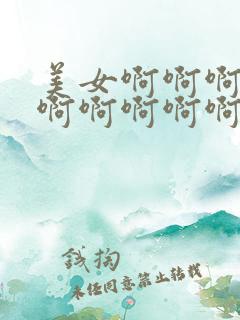 美女啊啊啊
啊啊啊啊啊
钱掏
未经同意禁止转载